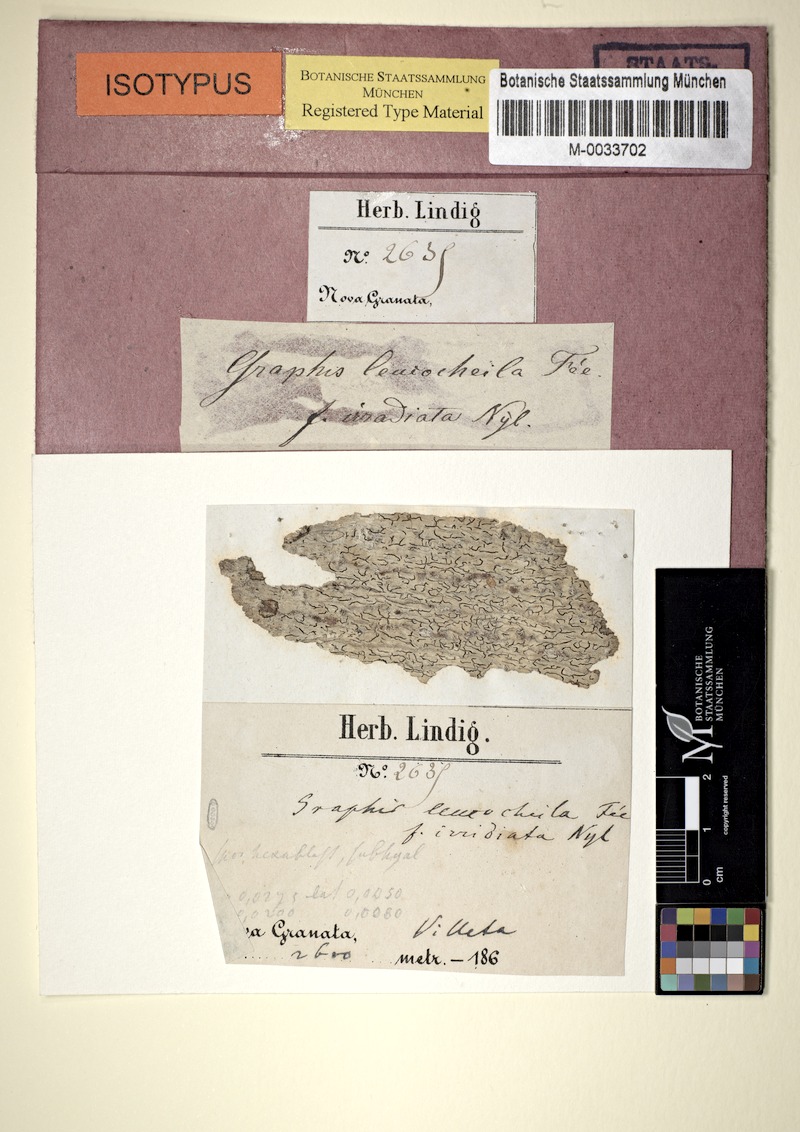 ISOTYPUS
BOTANISCHE STAATSSAMMLUNG
MÜNCHEN
Registered Type Material
STAATS-
Botanische Staatssammlung München
M-0033702
Herb. Lindig
No. 2635
Nova Granata,
Graphis leucocheila Fée.
f. irradiata Nyl.
Herb. Lindig.
No. 2635
Graphis leucocheila Fée
f. irridiata Nyl
0,0050
0,0080
va Granata, Villeta
2600 metr. — 186
BOTANISCHE
STAATSSAMMLUNG
MÜNCHEN
0 1 2
cm
copyright reserved